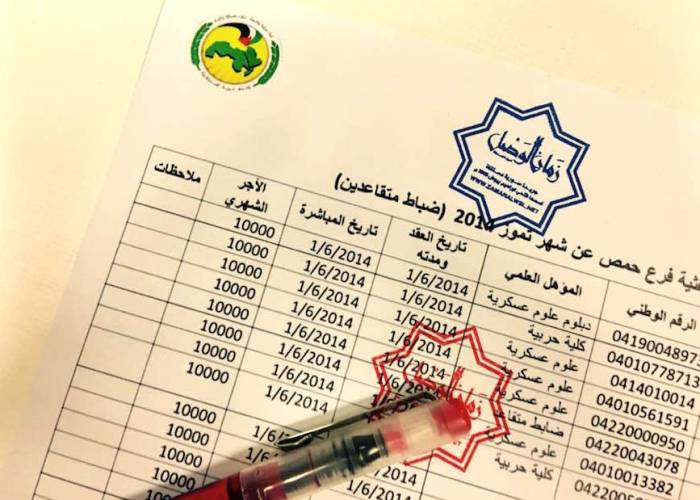 زمان الوصل
WWW.ZAMANALWSL.NET
فرع حمص عن شهر تموز 2014 (ضباط متقاعدين)
الرقم الوطني المؤهل العلمي تاريخ العقد ومدته تاريخ المباشرة الأجر الشهري ملاحظات
0419004897 دبلوم علوم عسكرية 1/6/2014 1/6/2014 10000
04010778713 كلية حربية 1/6/2014 1/6/2014 10000
0414010014 علوم عسكرية 1/6/2014 1/6/2014 10000
04010561591 علوم عسكرية 1/6/2014 1/6/2014 10000
04220000950 ضابط متقاعد 1/6/2014 1/6/2014 10000
04220043078 علوم عسكرية 1/6/2014 10000
04010013382 كلية حربية 1/6/2014 10000
1/6/2014 10000
10000
10000
زمان الوصل